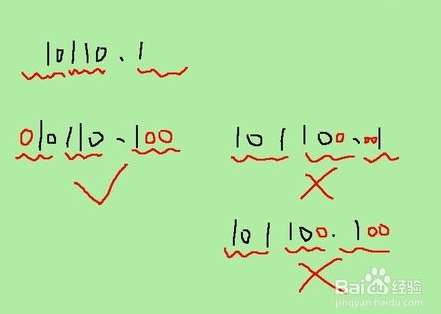 10110.1
010110.100
101100.001
101100.100
Baidu经验
jingyan.baidu.com